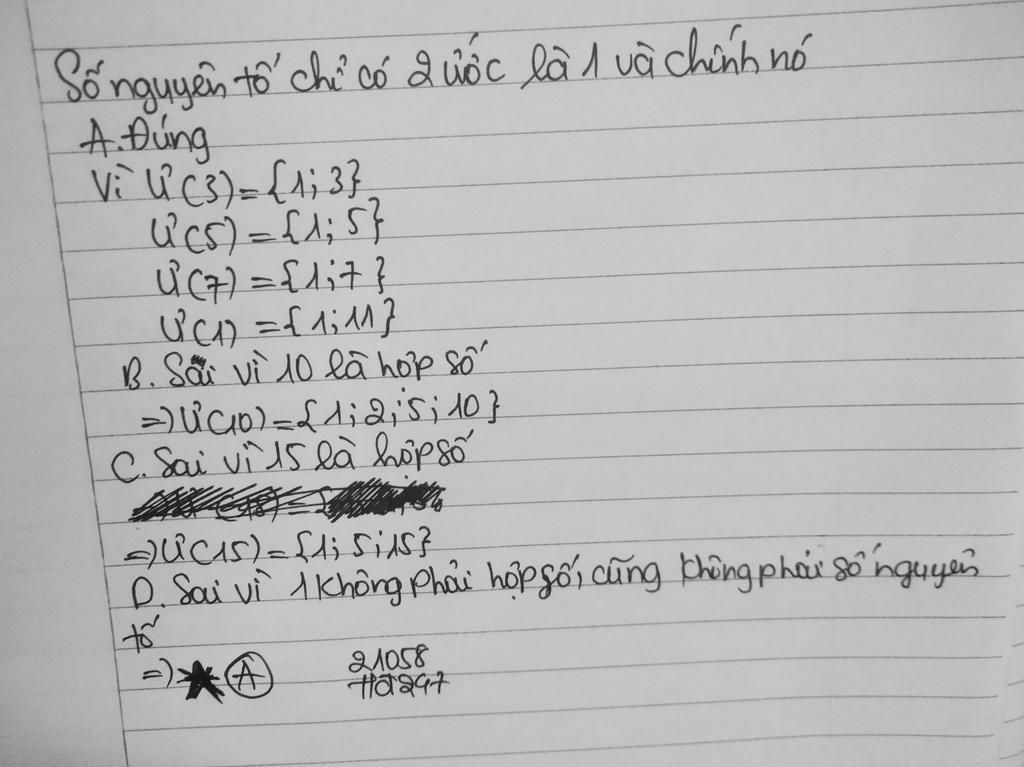 Số nguyên tố chỉ có 2 ước là 1 và chính nó
A. Đúng
Vì Ư(3) = {1; 3}
Ư(5) = {1; 5}
Ư(7) = {1; 7}
Ư(1) = {1; 11}
B. Sai vì 10 là hợp số
=) Ư(10) = {1; 2; 5; 10}
C. Sai vì 15 là hợp số
=) Ư(15) = {1; 5; 15}
D. Sai vì 1 không phải hợp số, cũng không phải số nguyên
tố
=) A
21058